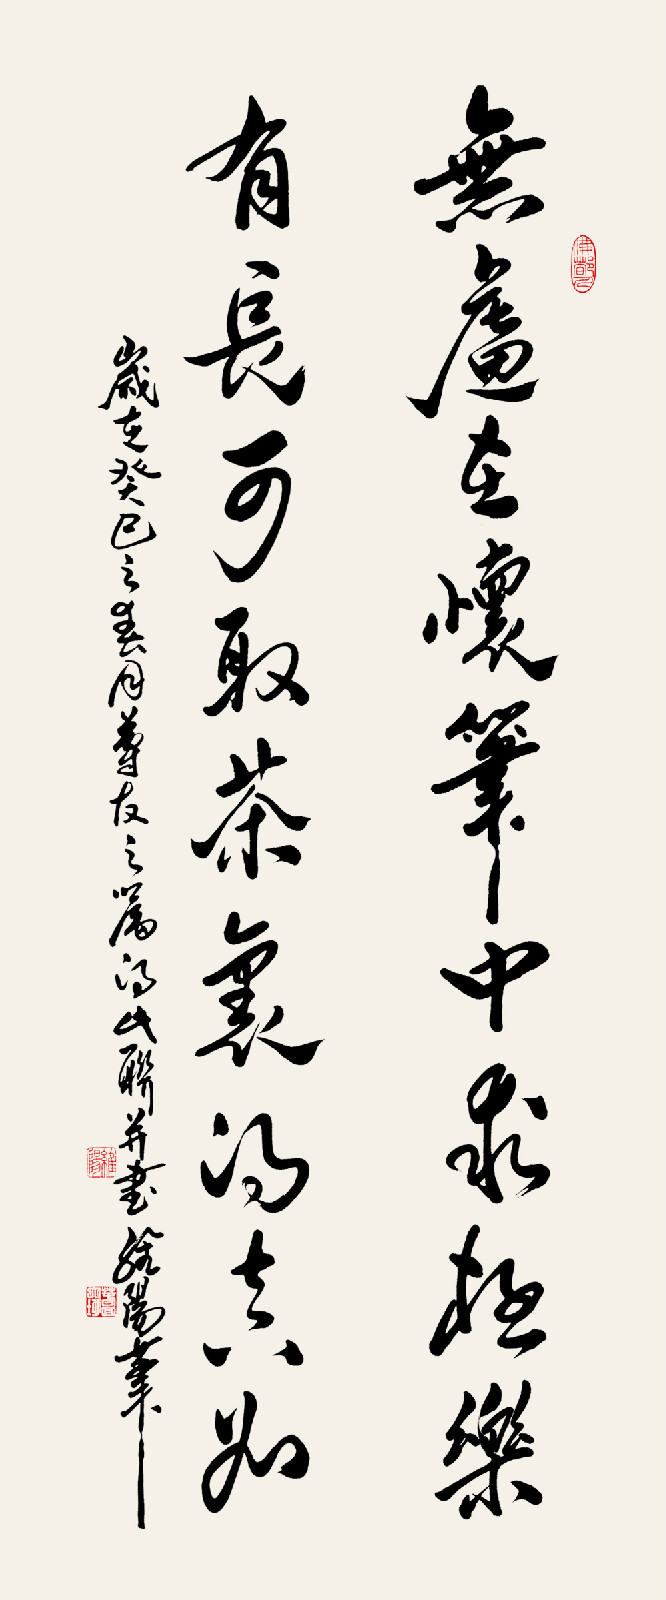 無慮在懷筆中求極樂
有長可取茶裏得真如
歲在癸巳之春月尊友之囑得此聯并書 維陽